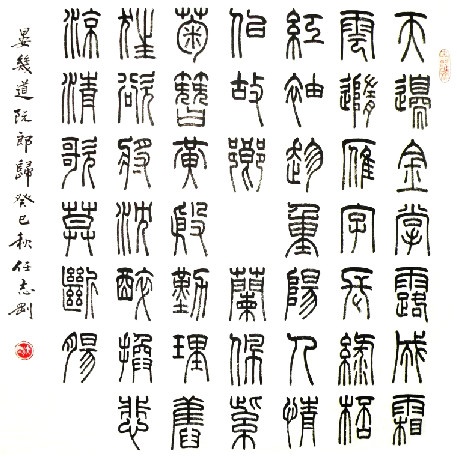 天邊金掌露成霜
雲隨雁字長綠桮
紅袖趁重陽人情
佀故鄉蘭佩紫
菊簪黃殷勤理舊
狂欲將沈醉換悲
涼清歌莫斷腸
晏幾道阮郎歸癸巳秋任志剛